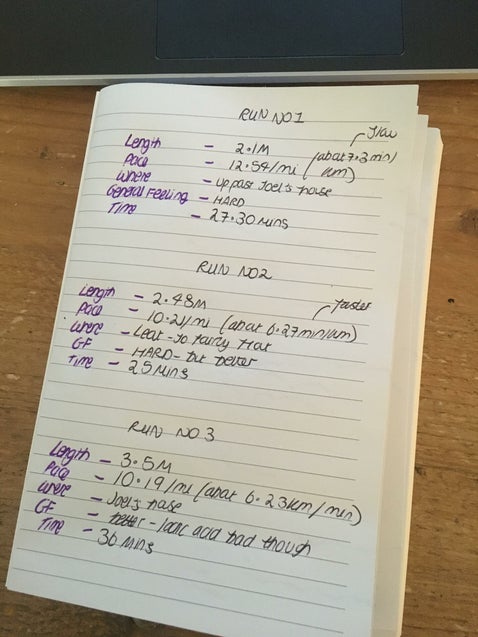 RUN NO1
slow
Length - 2.1M
Pace - 12.54/mi (about 7.3 min/km)
Where - up past Joel's house
General Feeling - HARD
Time - 27.30 mins
RUN NO2
faster
Length - 2.48M
Pace - 10.21/mi (about 6.27min/km)
Where - Leat - so fairly flat
GF - HARD - but better
Time - 25 mins
RUN NO 3
Length - 3.5M
Pace - 10.19/mi (about 6.23km/min)
Where - Joel's house
GF - better - lactic acid bad though
Time - 36 mins